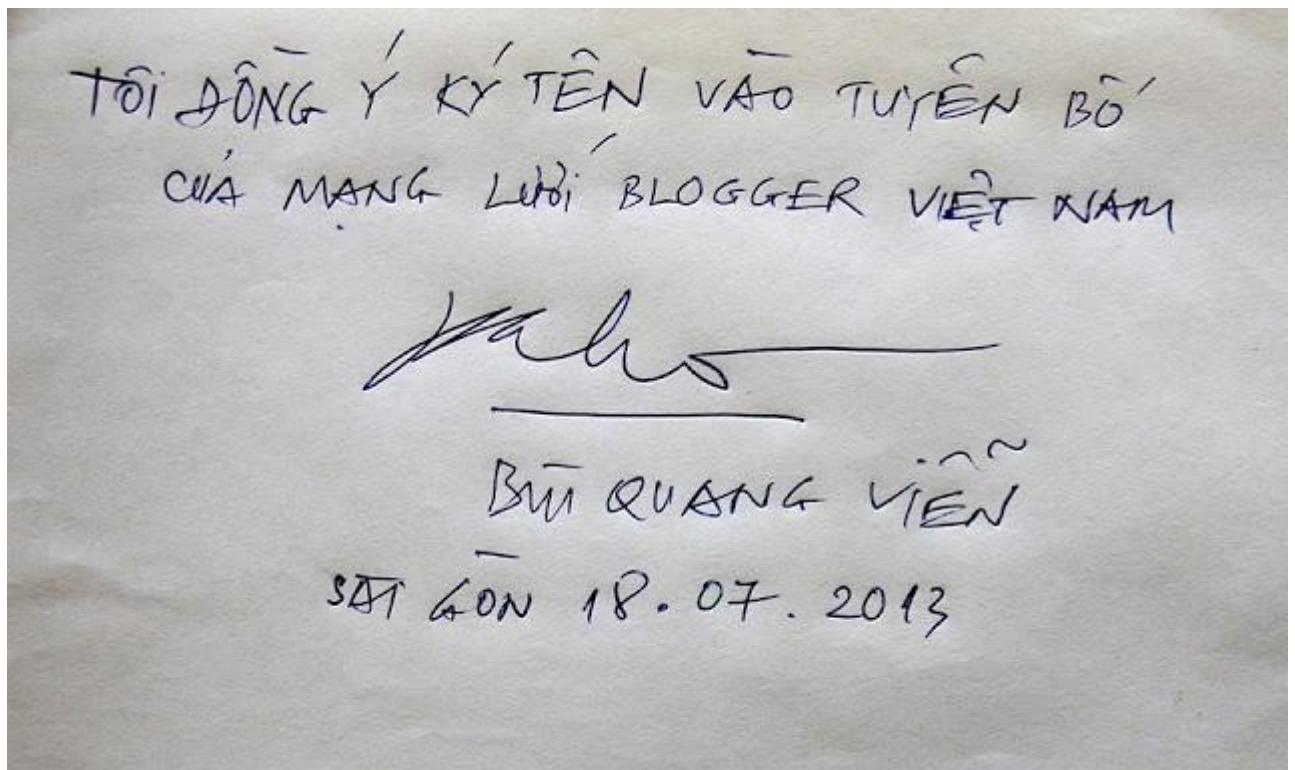 TÔI ĐỒNG Ý KÝ TÊN VÀO TUYÊN BỐ
CỦA MẠNG LƯỚI BLOGGER VIỆT NAM
BÙI QUANG VIỄN
SÀI GÒN 18.07.2013